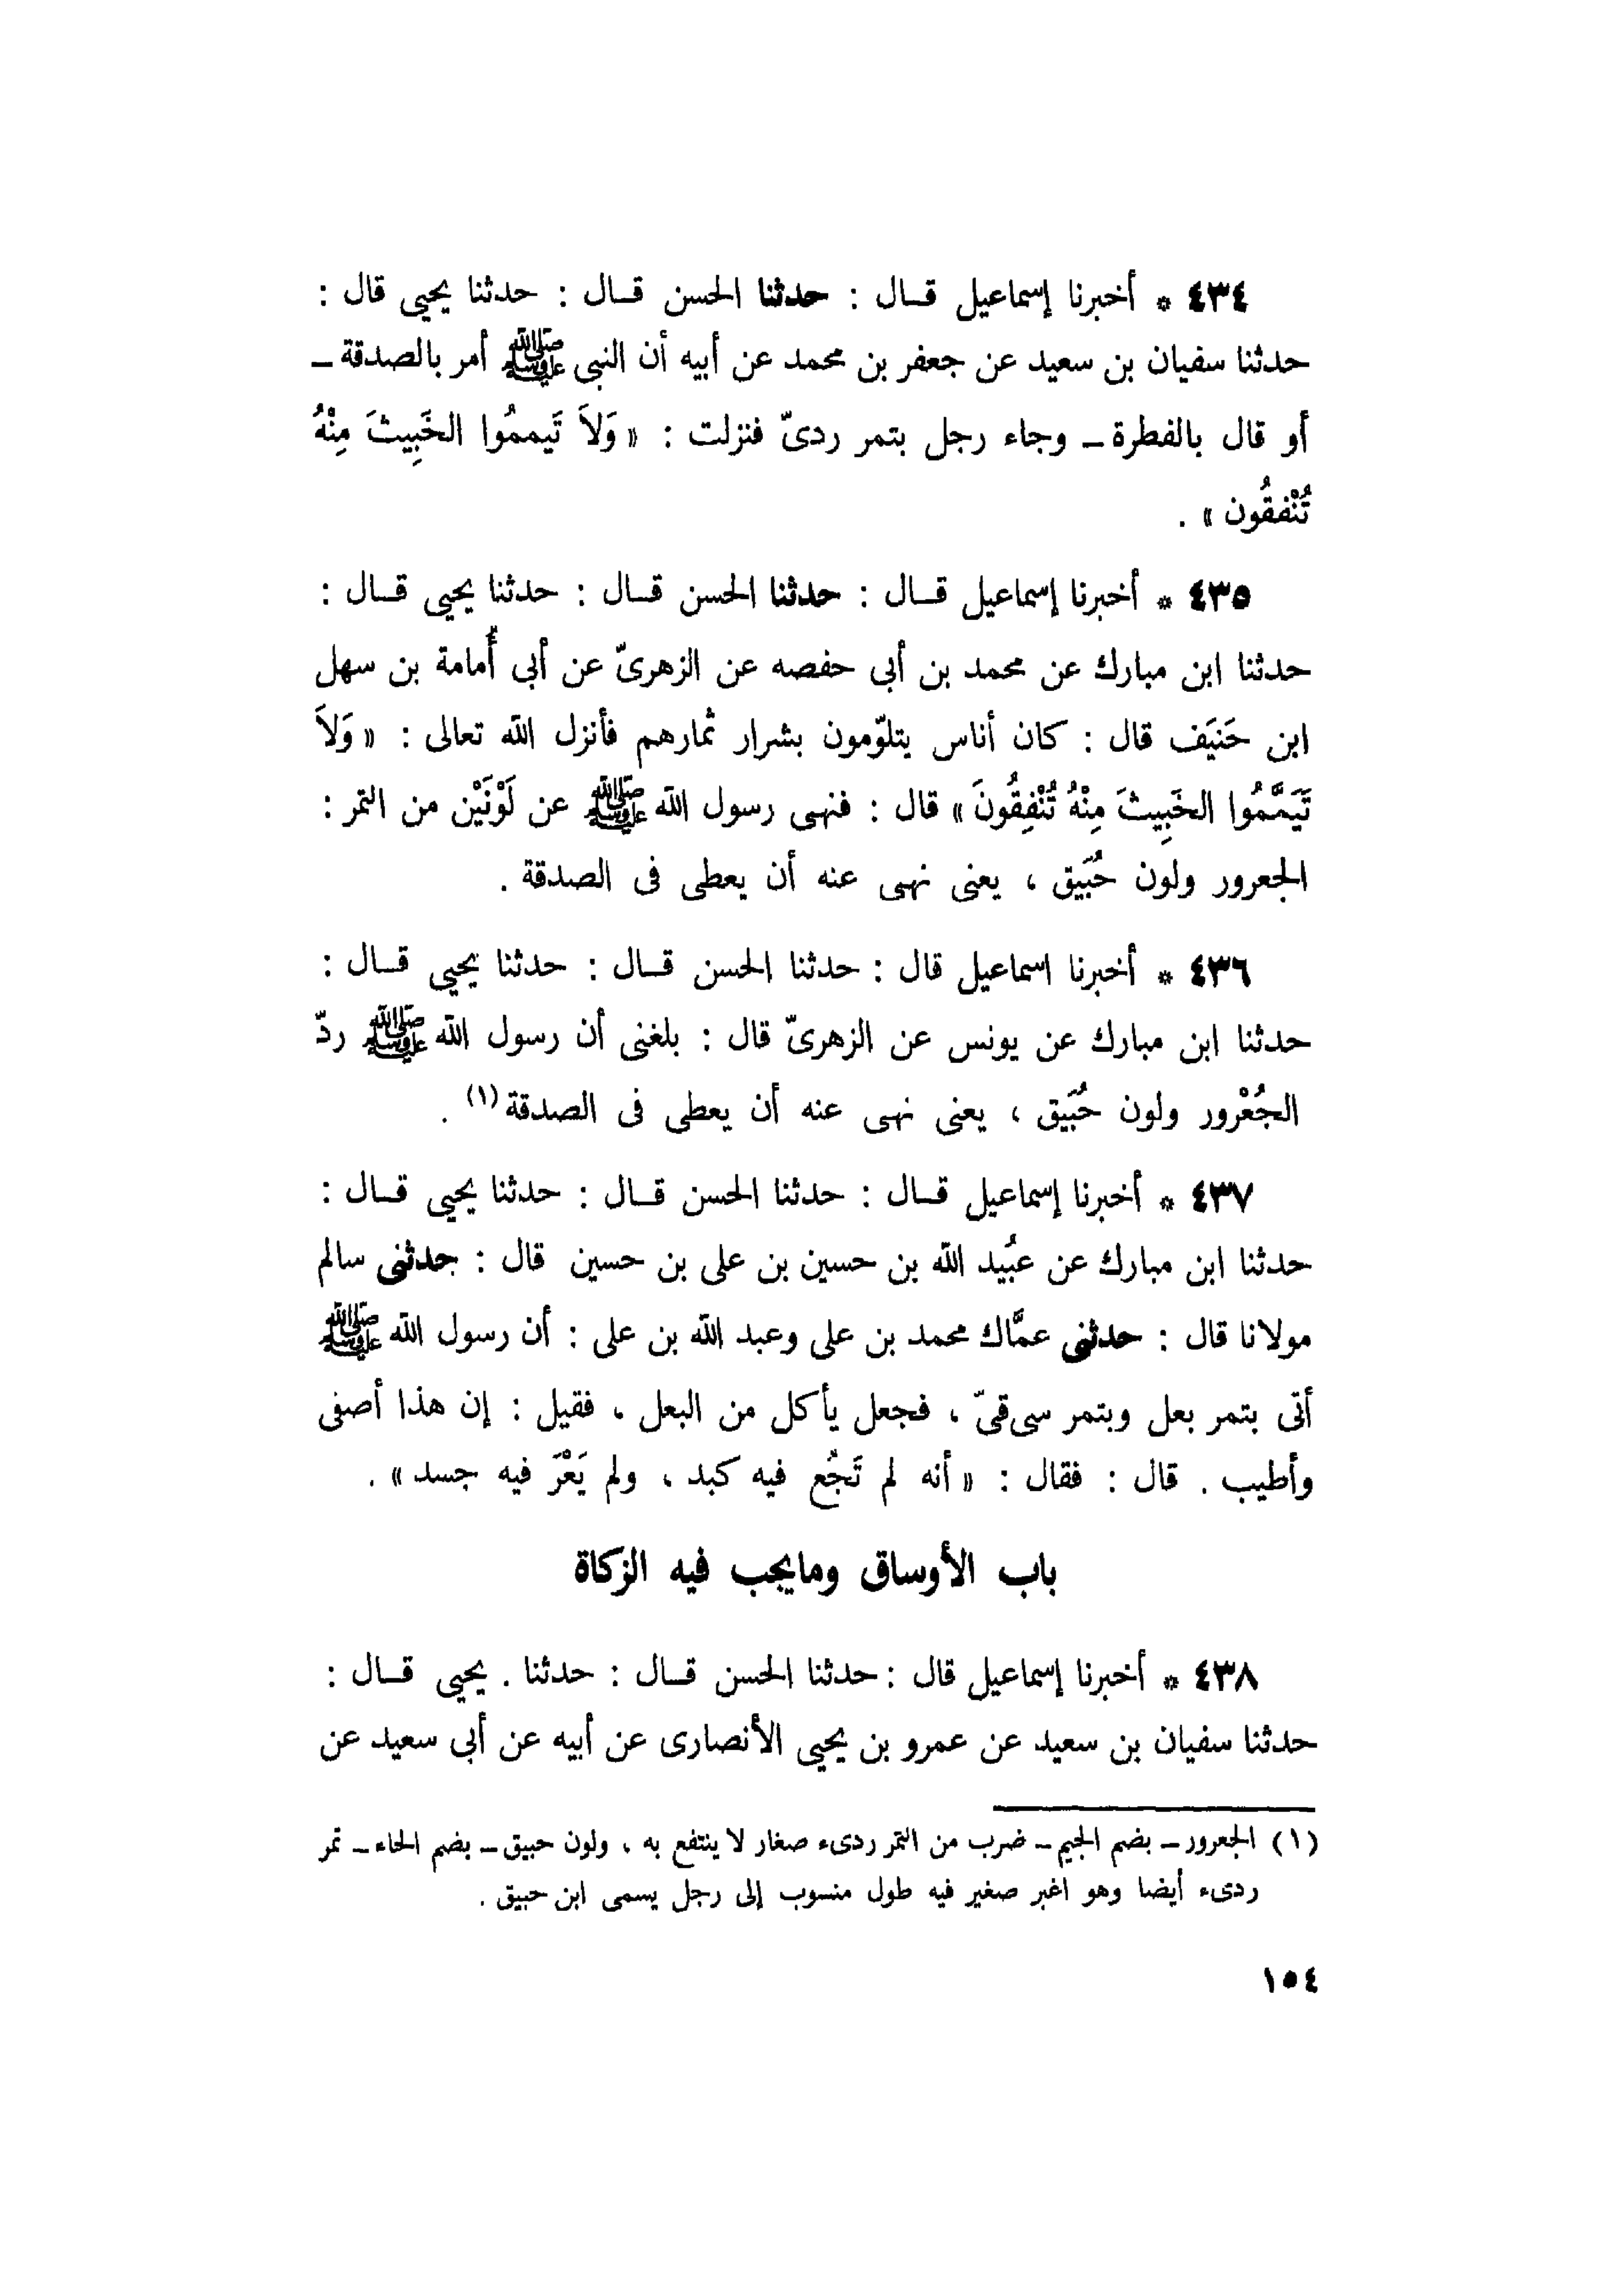 ٤٣٤ * أخبرنا إسماعيل قـال : حدثنا الحسن قـال : حدثنا يحيى قال :
حدثنا سفيان بن سعيد عن جعفر بن محمد عن أبيه أن النبى ﷺ أمر بالصدقة ــ
أو قال بالفطرة ــ وجاء رجل بتمر ردىّ فنزلت : « وَلاَ تَيممُوا الخَبِيثَ مِنْهُ
تُنْفقُون » .
٤٣٥ * أخبرنا إسماعيل قـال : حدثنا الحسن قـال : حدثنا يحيى قـال :
حدثنا ابن مبارك عن محمد بن أبى حفصه عن الزهرىّ عن أبى أُمامة بن سهل
ابن حَنيَف قال : كان أناس يتلوّمون بشرار ثمارهم فأنزل الله تعالى : « وَلاَ
تَيَمَّمُوا الخَبِيثَ مِنْهُ تُنْفِقُونَ » قال : فنهى رسول الله ﷺ عن لَوْنَيْن من التمر :
الجعرور ولون حُبَيق ، يعنى نهى عنه أن يعطى فى الصدقة .
٤٣٦ * أخبرنا اسماعيل قال : حدثنا الحسن قـال : حدثنا يحيى قـال :
حدثنا ابن مبارك عن يونس عن الزهرىّ قال : بلغنى أن رسول الله ﷺ ردّ
الجُعْرور ولون حُبَيق ، يعنى نهى عنه أن يعطى فى الصدقة (١) .
٤٣٧ * أخبرنا إسماعيل قـال : حدثنا الحسن قـال : حدثنا يحيى قـال :
حدثنا ابن مبارك عن عبُيد الله بن حسين بن على بن حسين قال : حدثنى سالم
مولانا قال : حدثنى عمَّاك محمد بن على وعبد الله بن على : أن رسول الله ﷺ
أتى بتمر بعل وبتمر سىقىّ ، فجعل يأكل من البعل ، فقيل : إن هذا أصفى
وأطيب . قال : فقال : « أنه لم تَجُع فيه كبد ، ولم يَعْرَ فيه جسد » .
باب الأوساق ومايجب فيه الزكاة
٤٣٨ * أخبرنا إسماعيل قال : حدثنا الحسن قـال : حدثنا . يحيى قـال :
حدثنا سفيان بن سعيد عن عمرو بن يحيى الأنصارى عن أبيه عن أبى سعيد عن
(١) الجعرور ــ بضم الجيم ــ ضرب من التمر ردىء صغار لا ينتفع به ، ولون حبيق ــ بضم الحاء ــ تمر
ردىء أيضا وهو اغبر صغير فيه طول منسوب إلى رجل يسمى ابن حبيق .
١٥٤